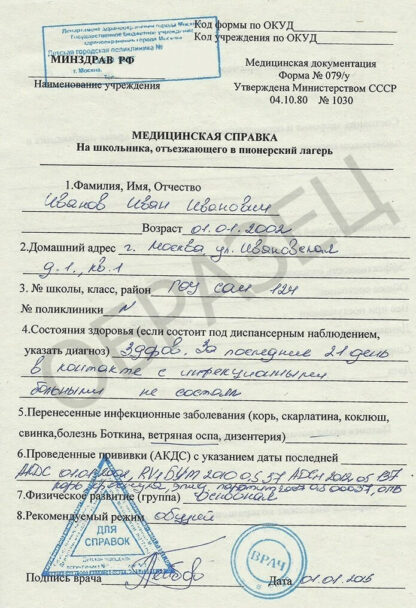 Код формы по ОКУД
Код учреждения по ОКУД
Департамент здравоохранения города Москвы
Государственное бюджетное учреждение
здравоохранения города Москвы
городская поликлиника №
г. Москва,
МИНЗДРАВ РФ
Наименование учреждения
Медицинская документация
Форма № 079/у
Утверждена Министерством СССР
04.10.80 № 1030
МЕДИЦИНСКАЯ СПРАВКА
На школьника, отъезжающего в пионерский лагерь
1.Фамилия, Имя, Отчество
Иванов Иван Иванович
Возраст 01.01.2002
2.Домашний адрес г. Москва ул. Ивановская
д.1, кв.1
3. № школы, класс, район ГОУ СОШ 124
№ поликлиники N
4.Состояния здоровья (если состоит под диспансерным наблюдением,
указать диагноз) Здоров. За последние 21 день
в контакте с инфекционными
больными не состоял
5.Перенесенные инфекционные заболевания (корь, скарлатина, коклюш,
свинка,болезнь Боткина, ветряная оспа, дизентерия)
6.Проведенные прививки (АКДС) с указанием даты последней
АКДС
7.Физическое развитие (группа) основная
8.Рекомендуемый режим общий
ДЛЯ
СПРАВОК
ВРАЧ
Подпись врача
Дата 01.01.2015
ОБРАЗЕЦ